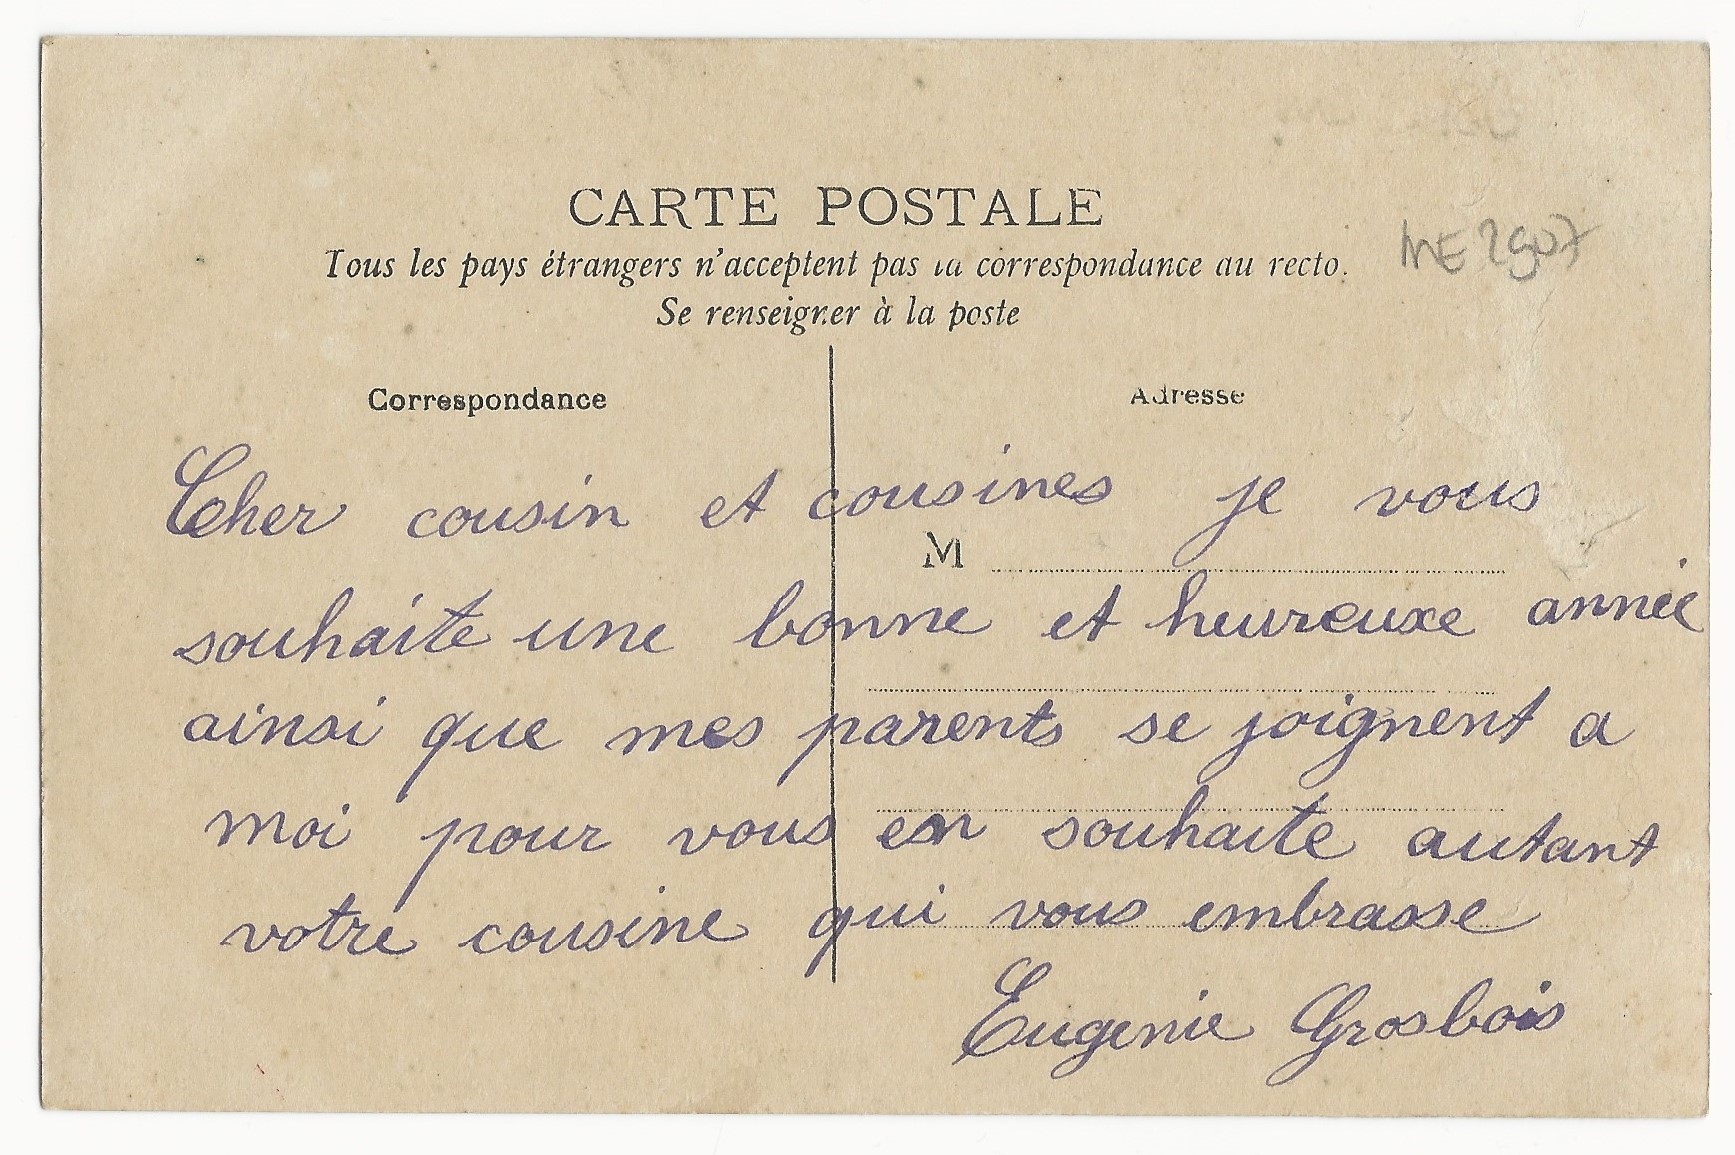 CARTE POSTALE
Tous les pays étrangers n'acceptent pas la correspondance au recto.
Se renseigner à la poste
Correspondance
Adresse
M
Cher cousin et cousines je vous
souhaite une bonne et heureuxe année
ainsi que mes parents se joignent a
moi pour vous en souhaite autant
votre cousine qui vous embrasse
Eugenie Grosbois